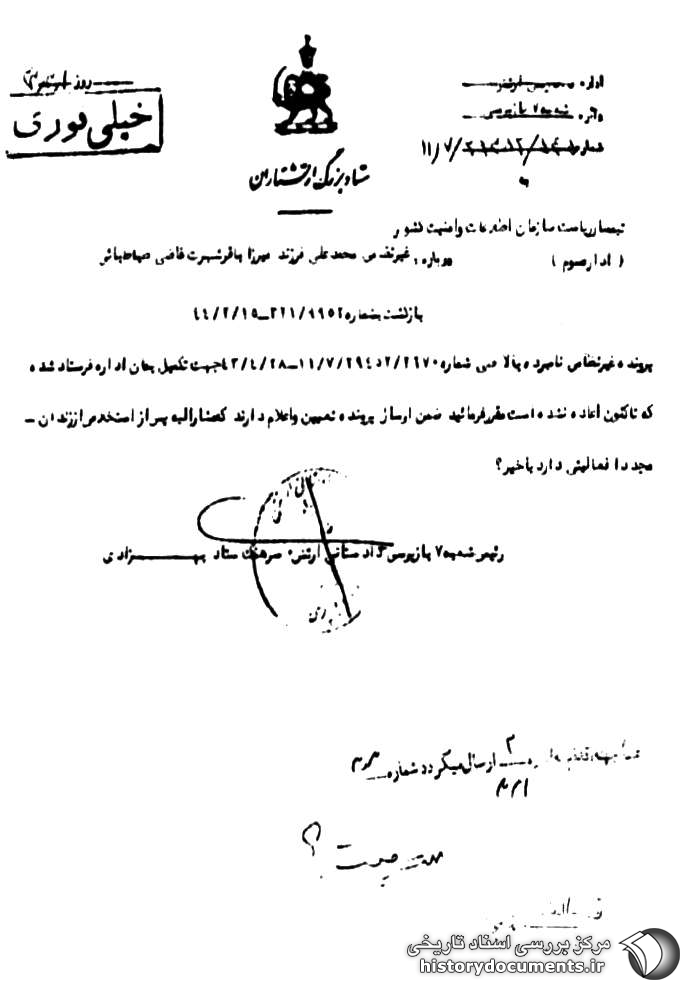 خیلی فوری
ستاد بزرگ ارتشتاران
اداره
دایره شعبه ۷ بازپرسی
شماره
تیمسار ریاست سازمان اطلاعات وامنیت کشور
( اداره سوم )
درباره: غیرنظامی محمدعلی فرزند میرزا باقر شهرت قاضی طباطبائی
بازگشت بشماره ۲۲۱/۹۹۵۲ــ۴۴/۲/۱۵
پرونده غیرنظامی نامبرده بالا طی شماره جهت تکمیل بان اداره فرستاده شده
که تاکنون اعاده نشده است مقررفرمائید ضمن ارسال پرونده تعیین واعلام دارند که مشارالیه پس از استخلاص اززندان ــ
مجددا فعالیتی دارد یاخیر؟
رئیس شعبه ۷ بازپرسی دادستانی ارتش: سرهنگ ستاد بهـــزادی
ارسال میگردد شماره
مرکز بررسی اسناد تاریخی
historydocuments.ir